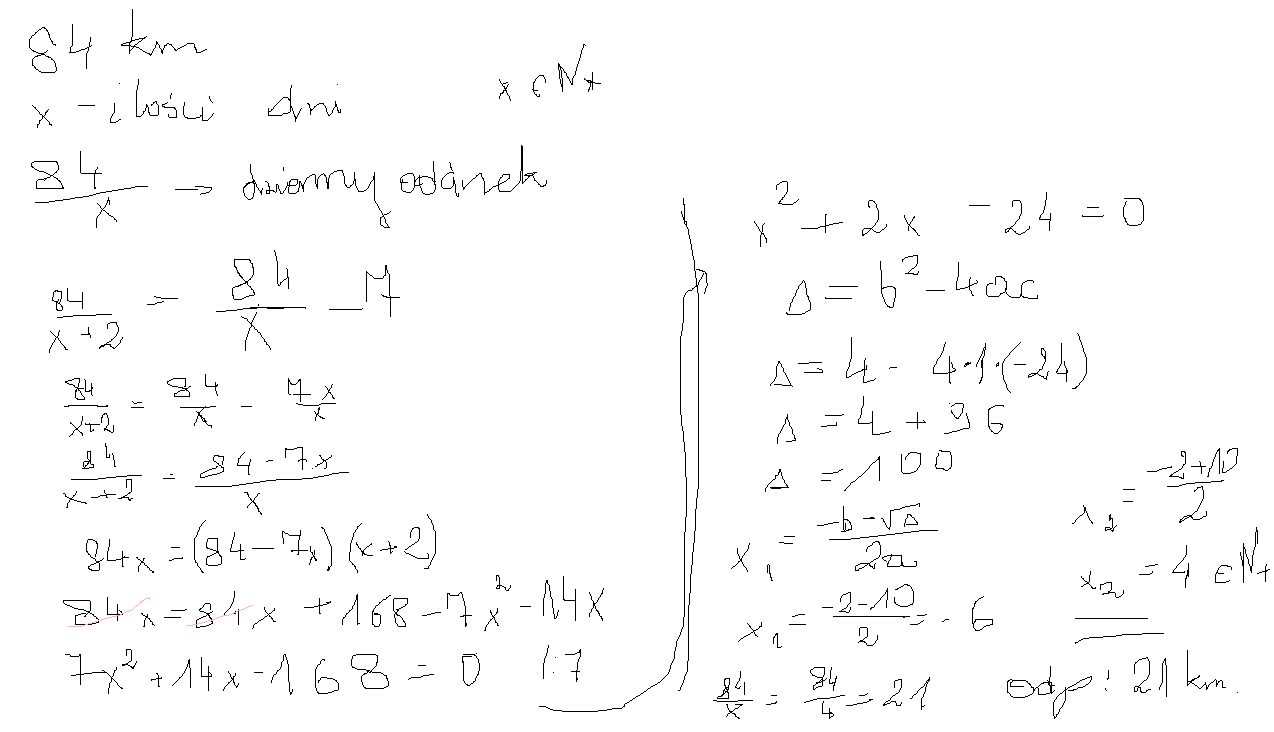 84 km
x - ilości dni x ∈ N+
84/x → dzienny odcinek
84/(x+2) = 84/x - 7
84/(x+2) = 84/x - 7x/x
84/(x+2) = (84-7x)/x
84x = (84-7x)(x+2)
84x = 84x + 168 - 7x² - 14x
7x² + 14x - 168 = 0 /:7
x² + 2x - 24 = 0
Δ = b² - 4ac
Δ = 4 - 4·1·(-24)
Δ = 4 + 96
Δ = 100
x₁ = (-b-√Δ)/2a
x₁ = (-2-10)/2 = -6
x₂ = (-2+10)/2
x₂ = 4 ∈ N+
84/x = 84/4 = 21
odp: 21 km.